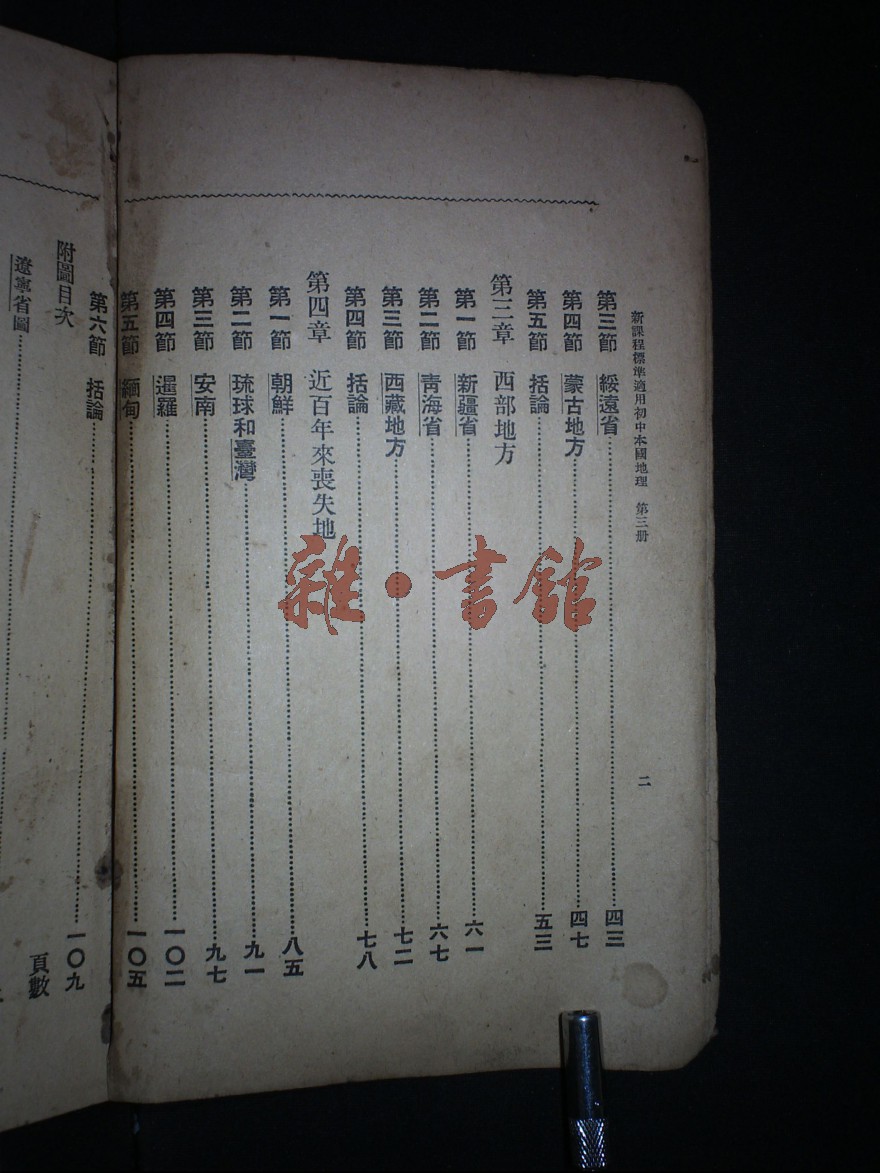 新課程標準適用初中本國地理 第三册
二
第三節 綏遠省 四三
第四節 蒙古地方 四七
第五節 括論 五三
第三章 西部地方
第一節 新疆省 六一
第二節 靑海省 六七
第三節 西藏地方 七二
第四節 括論 七八
第四章 近百年來喪失地
第一節 朝鮮 八五
第二節 琉球和臺灣 九一
第三節 安南 九七
第四節 暹羅 一〇二
第五節 緬甸 一〇五
第六節 括論 一〇九
附圖目次 頁數
遼寧省圖
雜·書館